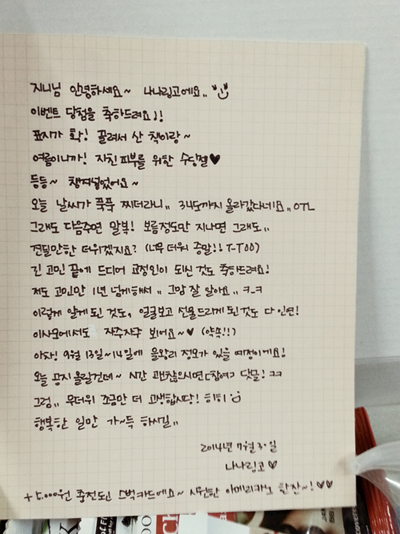 지니님 안녕하세요~ 나나링고에요..
이벤트 당첨을 축하드려요!!
표지가 확! 끌려서 산 책이랑~
여름이니까! 지친 피부를 위한 수딩젤♥
등등~ 챙겨넣었어요~
오늘 날씨가 푹푹 찌더라니.. 34도까지 올라갔다네요.. OTL
그래도 다음주면 말복! 보름정도만 지나면 그래도..
견딜만한 더위겠지요? (너무 더워 증말!! T-TOO)
긴 고민 끝에 드디어 교정인이 되신 것도 축하드려요!
저도 고민만 1년 넘게해서.. 그맘 잘 알아요.. ㅋ_ㅋ
이렇게 알게 된 것도, 얼굴보고 선물드리게 된것도 다 인연!
이사온에서도 자주자주 봐어요~♥ (약속!!)
아차! 9월 13일~14일에 을왕리 정모가 있을 예정이에요!
오늘 공지 올릴건데~ 시간 괜찮으시면 [참여] 댓글! ㅋㅋ
그럼.. 무더위 조금만 더 고생합시당! 히히
행복한 일만 가~득 하시길..
2014년 7월 31일
나나링고 ♡
+ 5,000원 충전도니 스벅카드에요~ 시원한 아메리카노 한잔~! ♡♥